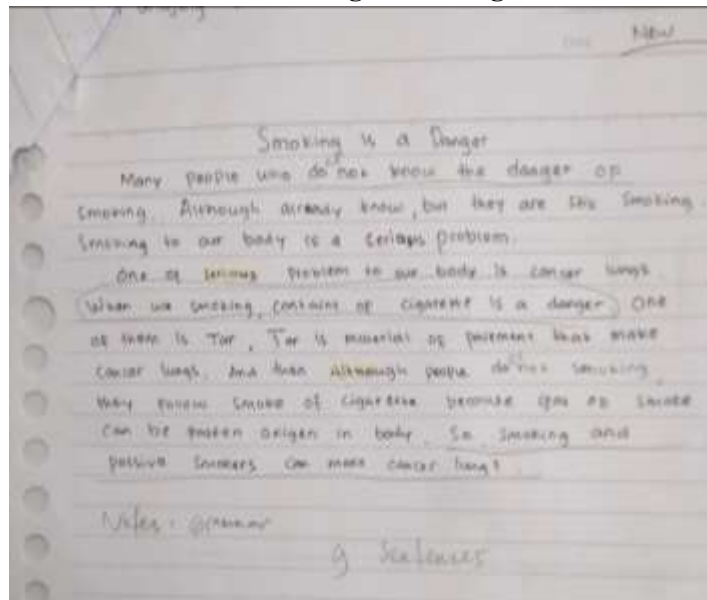 New
Smoking is a Danger
Many people who do not know the danger op
Smoking. Although already know, but they are Smoking.
Smoking to our body is a problem.
One of serious problem to our body is cancer lungs.
When we smoking, of cigarette is a danger. One
of them is Tar, Tar is material of pavement that make
cancer lungs. And then Although people do not smoking,
they smoke of cigarette because gas op smoke
can be oxigen in body. So smoking and
passive smokers can make cancer lungs
Notes: grammar
9 Sentences